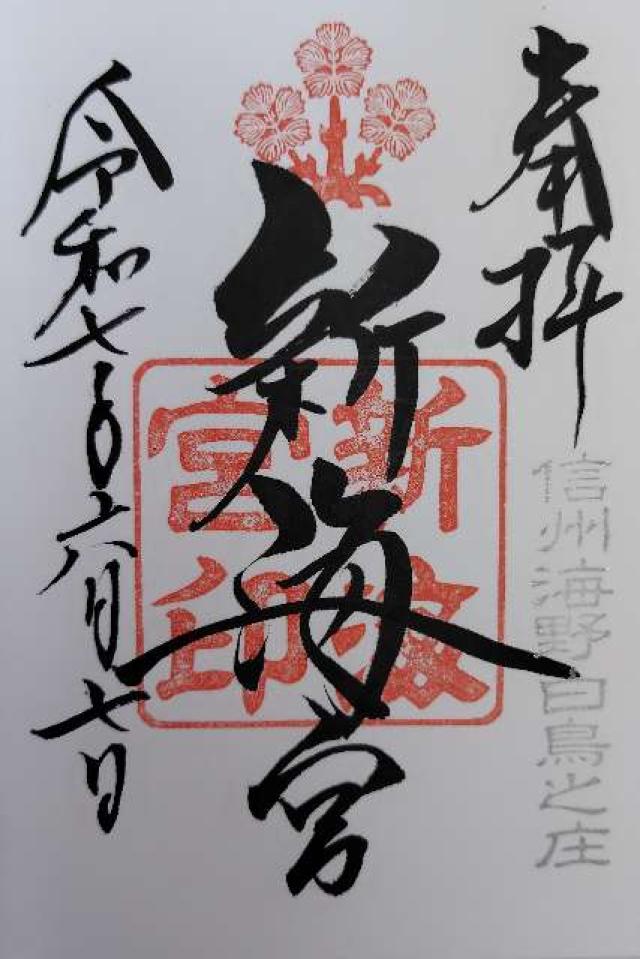 奉拝
信州海野白鳥之庄
新海宮
新海
宮印
令和七年六月七日